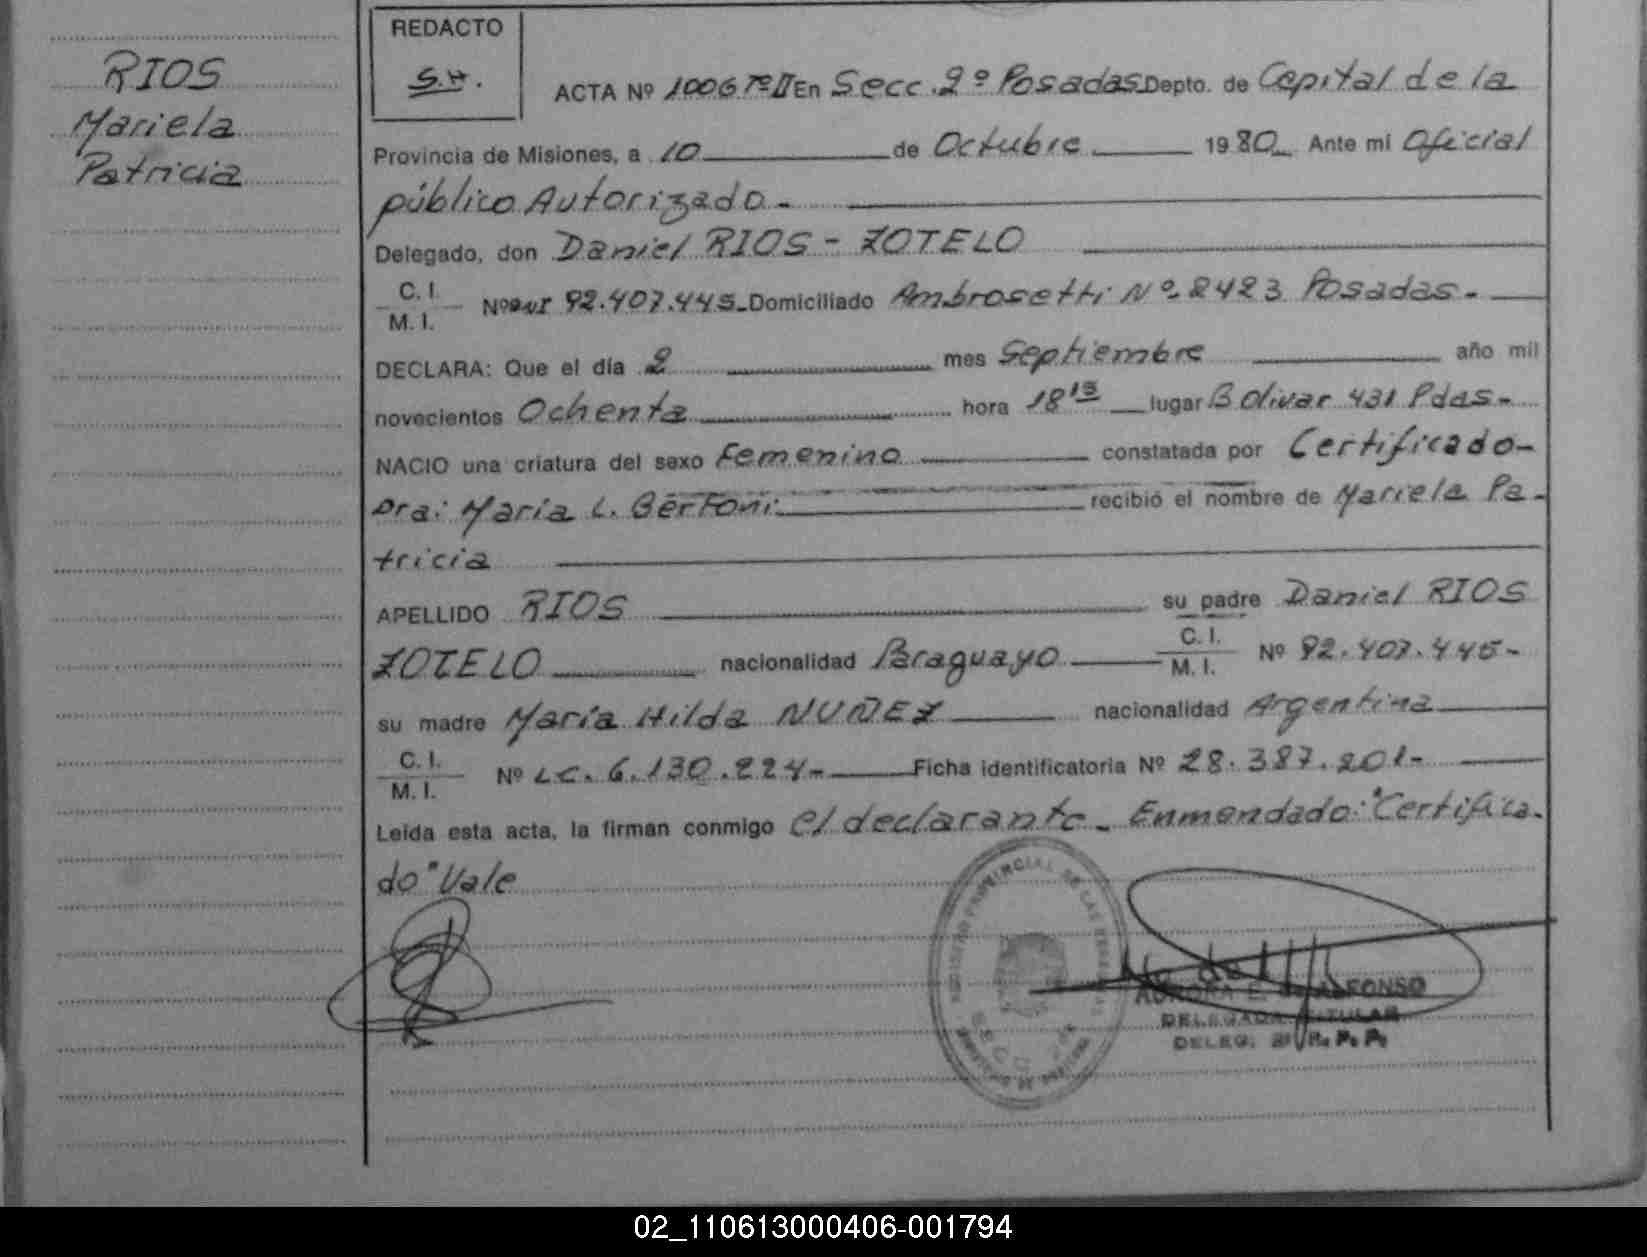 RIOS
Mariela
Patricia
REDACTO
S.H.
ACTA Nº 1006 Tº II En Secc. 2º Posadas Depto. de Capital de la
Provincia de Misiones, a 10 de Octubre 1980 Ante mi Oficial
público Autorizado -
Delegado, don Daniel RIOS - ZOTELO
C. I.
M. I. Nº 92.407.445- Domiciliado Ambrosetti Nº 2423 Posadas -
DECLARA: Que el día 2 mes Septiembre año mil
novecientos Ochenta hora 18 15 lugar Bolivar 431 Pdas -
NACIO una criatura del sexo Femenino constatada por Certificado-
Dra: María L. Bertoni recibió el nombre de Mariela Pa-
tricia
APELLIDO RIOS su padre Daniel RIOS
ZOTELO nacionalidad Paraguayo C. I. M. I. Nº 92.407.445-
su madre María Hilda NUÑEZ nacionalidad Argentina
C. I.
M. I. Nº LC. 6.130.224- Ficha identificatoria Nº 28.387.201-
Leída esta acta, la firman conmigo el declarante - Enmendado: "Certifica-
do" Vale
REGISTRO PROVINCIAL DE LAS PERSONAS
AURORA E. ALFONSO
DELEGADA TITULAR
DELEG. R. P. P.
02_110613000406-001794